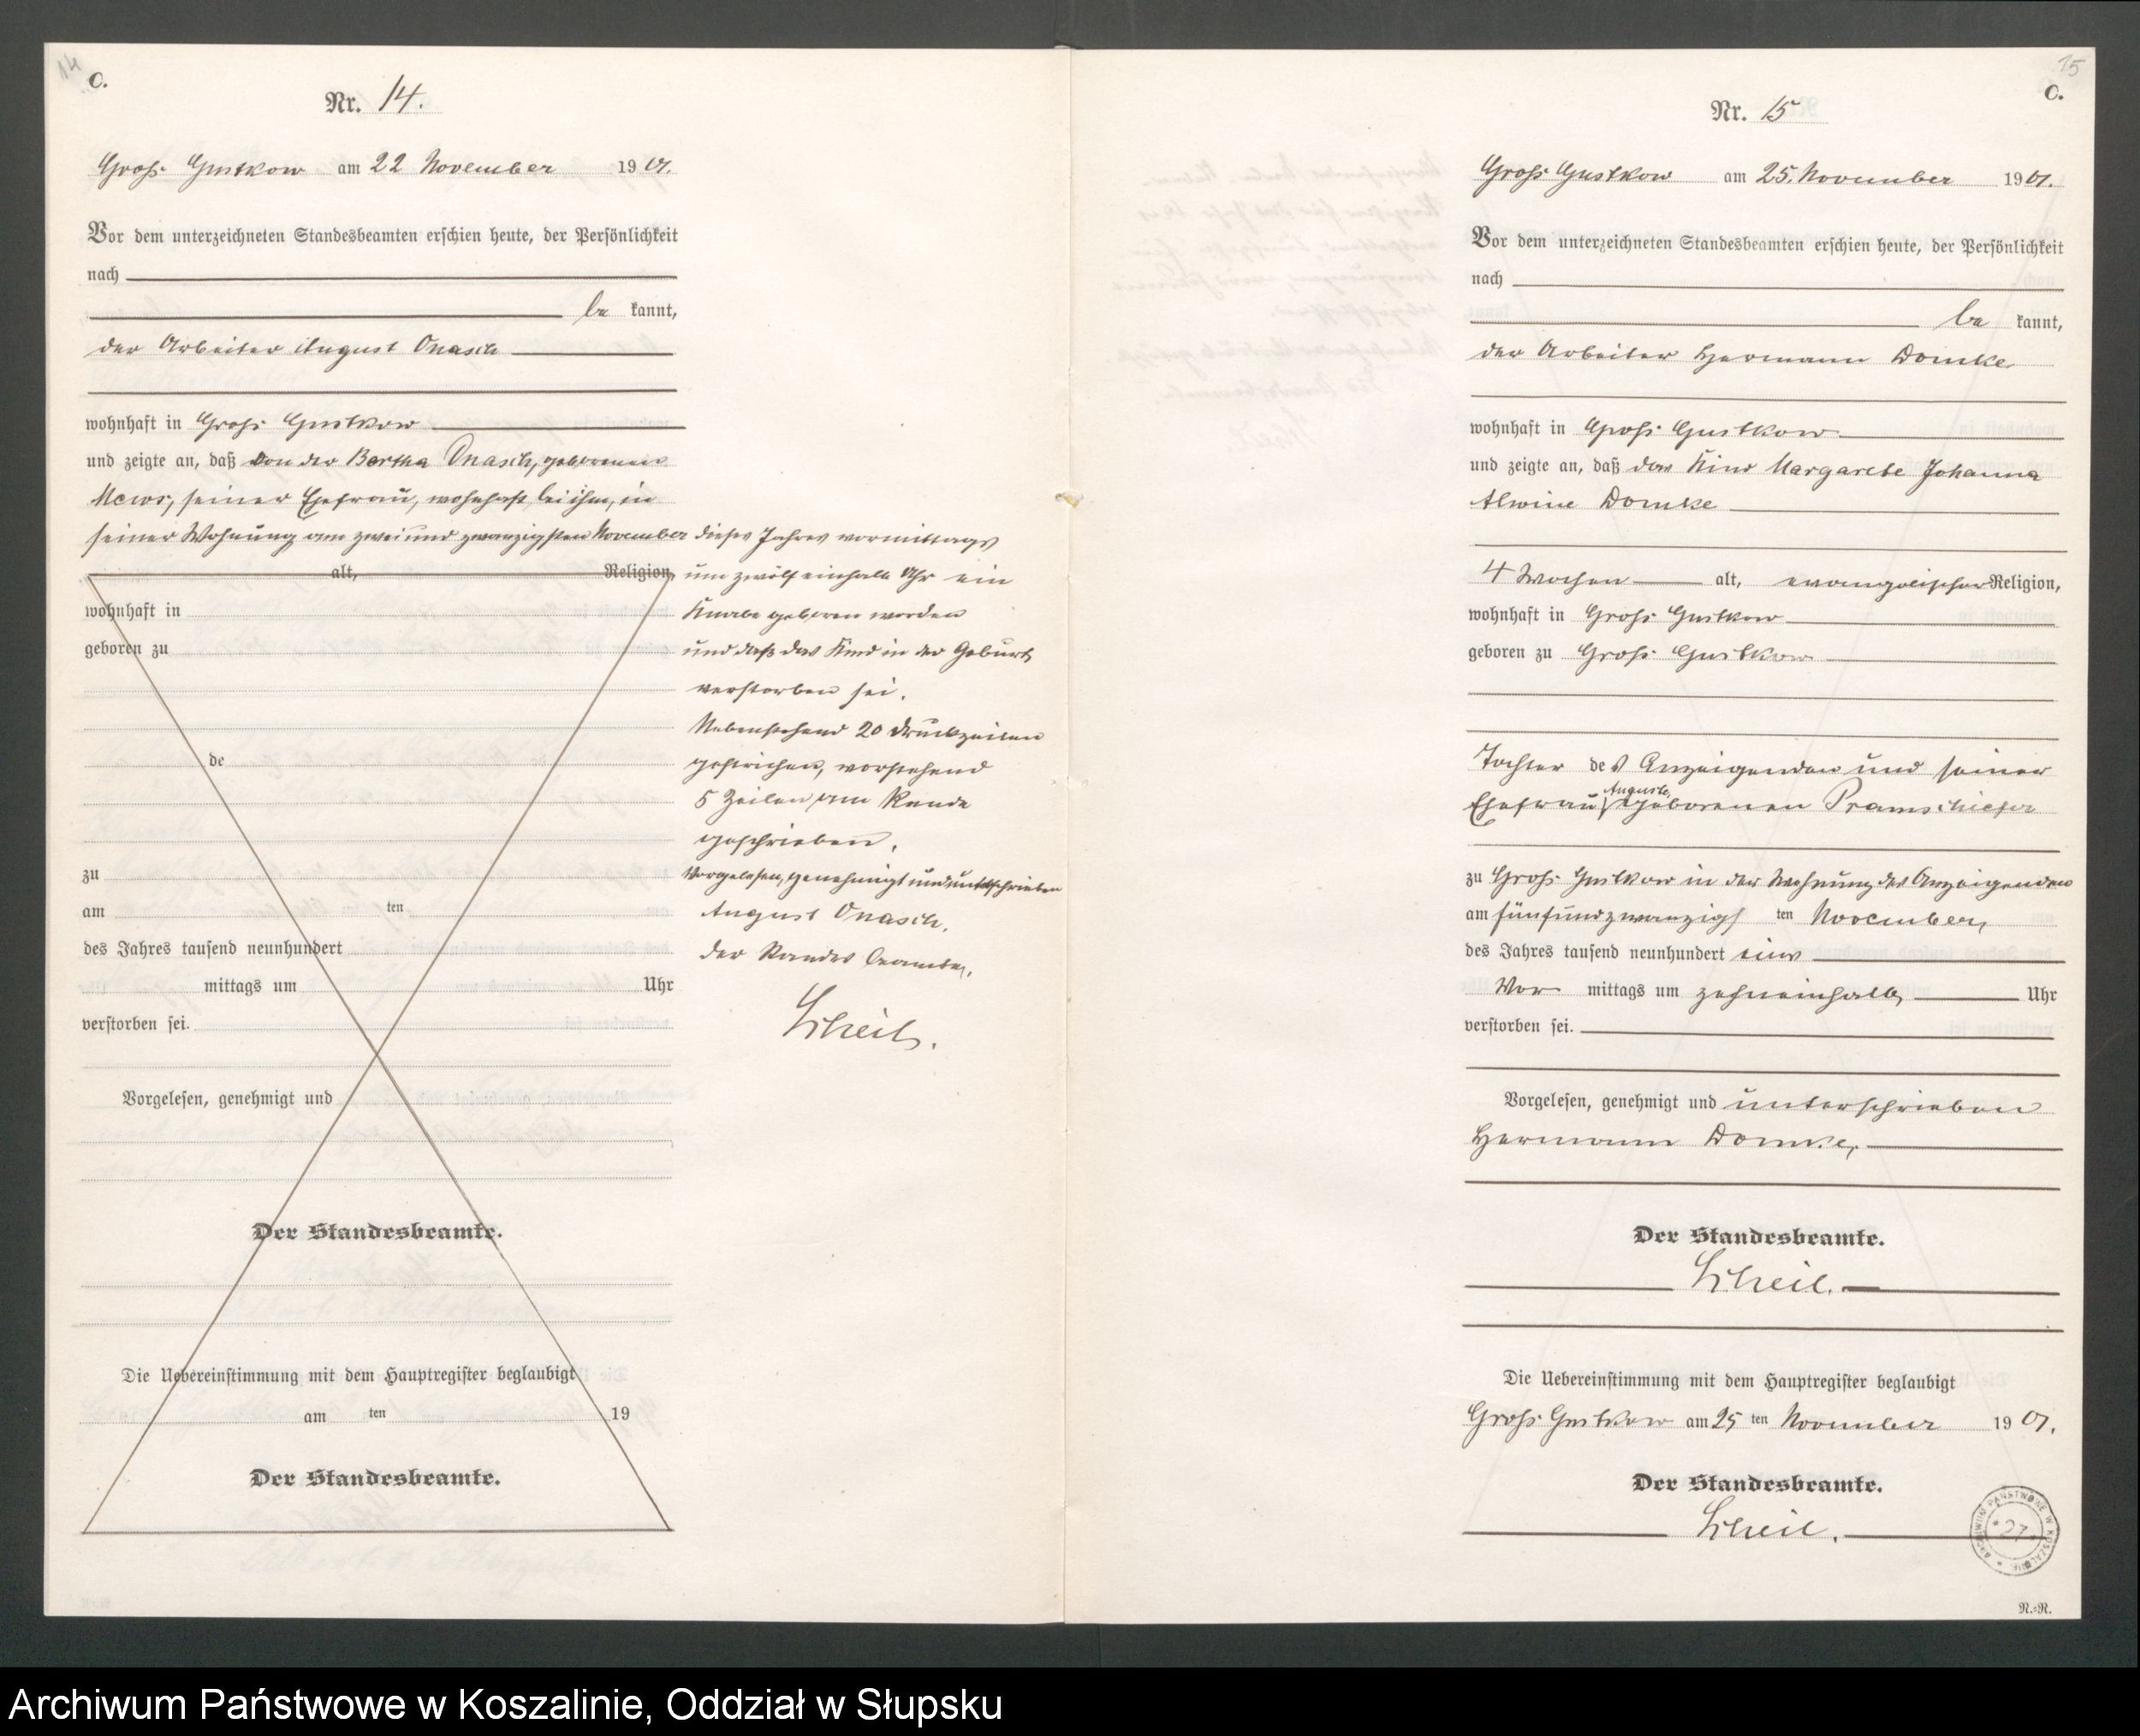 14
C.
Nr. 14.
Groß Gustkow am 22 November 1901.
Vor dem unterzeichneten Standesbeamten erschien heute, der Persönlichkeit
nach
be kannt,
der Arbeiter August Onasch
wohnhaft in Groß Gustkow
und zeigte an, daß von der Bertha Onasch, geborenen
Mews, seiner Ehefrau, wohnhaft bei ihm, in
seiner Wohnung am zwei und zwanzigsten November dieses Jahres vormittags
alt, Religion,
wohnhaft in
geboren zu
de
zu
am ten
des Jahres tausend neunhundert
mittags um Uhr
verstorben sei.
Vorgelesen, genehmigt und
Der Standesbeamte.
Die Uebereinstimmung mit dem Hauptregister beglaubigt
am ten 19
Der Standesbeamte.
um zwölf einhalb Uhr ein
Knabe geboren worden
und daß das Kind in der Geburt
verstorben sei.
Nebenstehend 20 Druckzeilen
gestrichen, vorstehend
5 Zeilen am Rande
geschrieben.
Vorgelesen, genehmigt und unterschrieben
August Onasch.
Der Standesbeamte.
Scheil.
15
C.
Nr. 15
Groß Gustkow am 25. November 1901.
Vor dem unterzeichneten Standesbeamten erschien heute, der Persönlichkeit
nach
be kannt,
der Arbeiter Hermann Domke
wohnhaft in Groß Gustkow
und zeigte an, daß das Kind Margarete Johanna
Alwine Domke
4 Wochen alt, evangelischer Religion,
wohnhaft in Groß Gustkow
geboren zu Groß Gustkow
Tochter des Anzeigenden und seiner
Auguste,
Ehefrau geborenen Pramschiefer
zu Groß Gustkow in der Wohnung des Anzeigenden
am fünfundzwanzigs ten November,
des Jahres tausend neunhundert eins
Vor mittags um zehneinhalb Uhr
verstorben sei.
Vorgelesen, genehmigt und unterschrieben
Hermann Domke,
Der Standesbeamte.
Scheil.
Die Uebereinstimmung mit dem Hauptregister beglaubigt
Groß Gustkow am 25 ten November 1901.
Der Standesbeamte.
Scheil.
ARCHIWUM PAŃSTWOWE W KOSZALINIE
27
R.=R.
Archiwum Państwowe w Koszalinie, Oddział w Słupsku